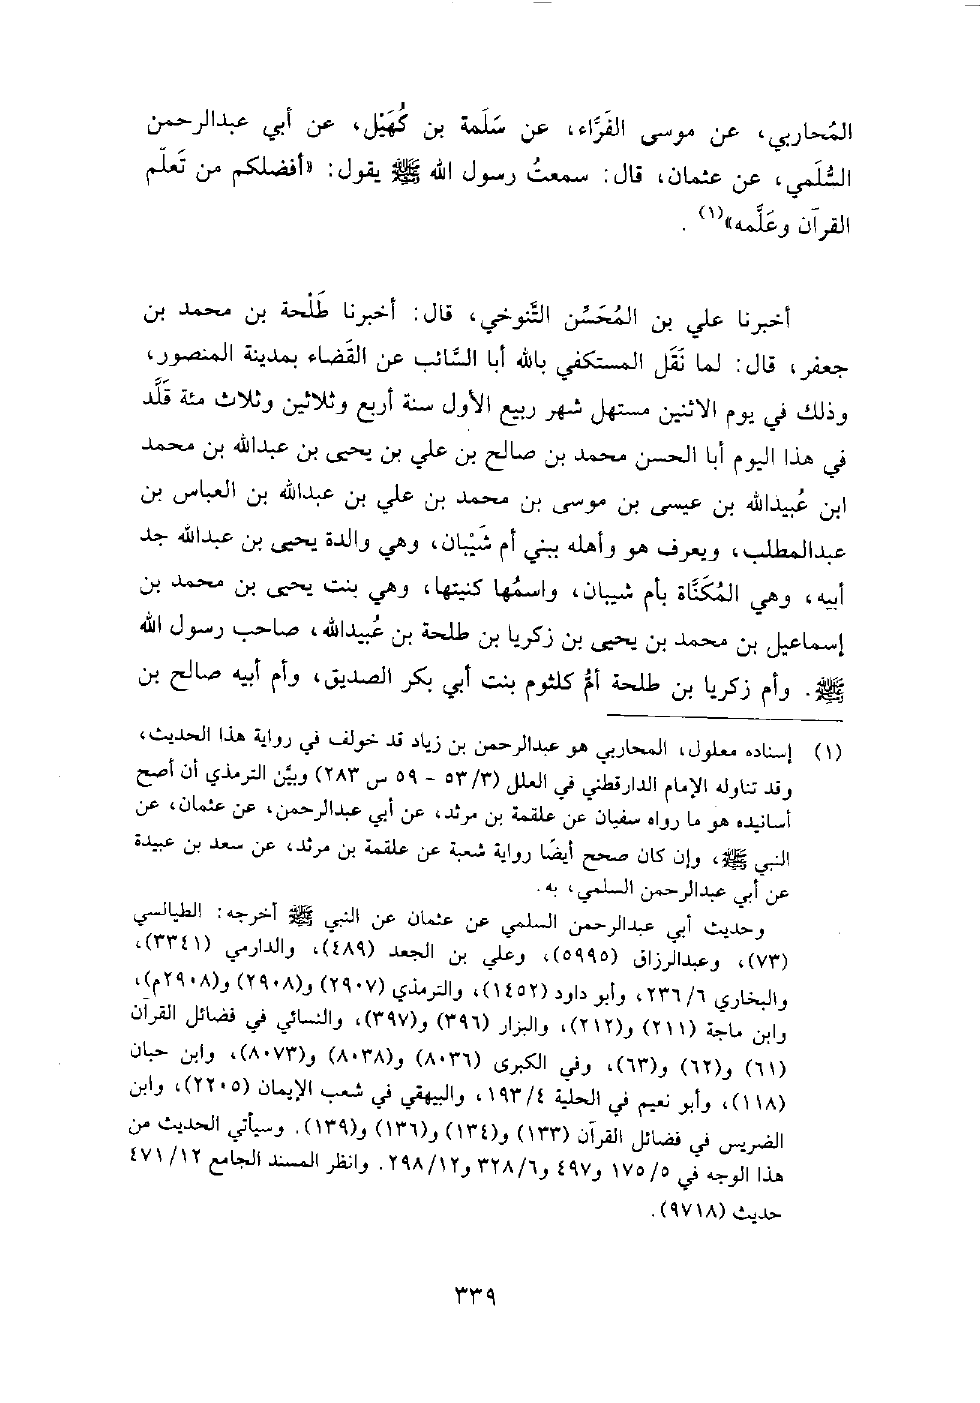 المُحاربي، عن موسى الفَرَّاء، عن سَلَمة بن كُهَيْل، عن أبي عبدالرحمن
السُّلَمي، عن عثمان، قال: سمعتُ رسول الله ﷺ يقول: «أفضلكم من تَعلَّم
القرآن وعَلَّمه»(١) .
أخبرنا علي بن المُحَسِّن التَّنوخي، قال: أخبرنا طَلْحة بن محمد بن
جعفر، قال: لما نَقَل المستكفي بالله أبا السَّائب عن القَضاء بمدينة المنصور،
وذلك في يوم الاثنين مستهل شهر ربيع الأول سنة أربع وثلاثين وثلاث مئة قَلَّد
في هذا اليوم أبا الحسن محمد بن صالح بن علي بن يحيى بن عبدالله بن محمد
ابن عُبيدالله بن عيسى بن موسى بن محمد بن علي بن عبدالله بن العباس بن
عبدالمطلب، ويعرف هو وأهله ببني أم شَيْبان، وهي والدة يحيى بن عبدالله جد
أبيه، وهي المُكَنَّاة بأم شيبان، واسمُها كنيتها، وهي بنت يحيى بن محمد بن
إسماعيل بن محمد بن يحيى بن زكريا بن طلحة بن عُبيدالله، صاحب رسول الله
ﷺ. وأم زكريا بن طلحة أمُّ كلثوم بنت أبي بكر الصديق، وأم أبيه صالح بن
(١) إسناده معلول، المحاربي هو عبدالرحمن بن زياد قد خولف في رواية هذا الحديث،
وقد تناوله الإمام الدارقطني في العلل (٣/ ٥٣ - ٥٩ س ٢٨٣) وبيَّن الترمذي أن أصح
أسانيده هو ما رواه سفيان عن علقمة بن مرثد، عن أبي عبدالرحمن، عن عثمان، عن
النبي ﷺ، وإن كان صحح أيضًا رواية شعبة عن علقمة بن مرثد، عن سعد بن عبيدة
عن أبي عبدالرحمن السلمي، به.
وحديث أبي عبدالرحمن السلمي عن عثمان عن النبي ﷺ أخرجه: الطيالسي
(٧٣)، وعبدالرزاق (٥٩٩٥)، وعلي بن الجعد (٤٨٩)، والدارمي (٣٣٤١)،
والبخاري ٦/ ٢٣٦، وأبو داود (١٤٥٢)، والترمذي (٢٩٠٧) و(٢٩٠٨) و(٢٩٠٨م)،
وابن ماجة (٢١١) و(٢١٢)، والبزار (٣٩٦) و(٣٩٧)، والنسائي في فضائل القرآن
(٦١) و(٦٢) و(٦٣)، وفي الكبرى (٨٠٣٦) و(٨٠٣٨) و(٨٠٧٣)، وابن حبان
(١١٨)، وأبو نعيم في الحلية ٤/ ١٩٣، والبيهقي في شعب الإيمان (٢٢٠٥)، وابن
الضريس في فضائل القرآن (١٣٣) و(١٣٤) و(١٣٦) و(١٣٩). وسيأتي الحديث من
هذا الوجه في ٥/ ١٧٥ و٤٩٧ و٦/ ٣٢٨ و١٢/ ٢٩٨. وانظر المسند الجامع ١٢/ ٤٧١
حديث (٩٧١٨).
٣٣٩